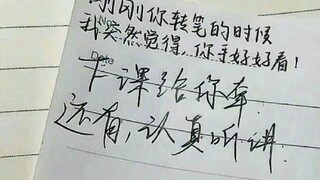 刚刚你转笔的时候
我突然觉得,你手好好看!
Note
下课给你牵.
还有,认真听讲.